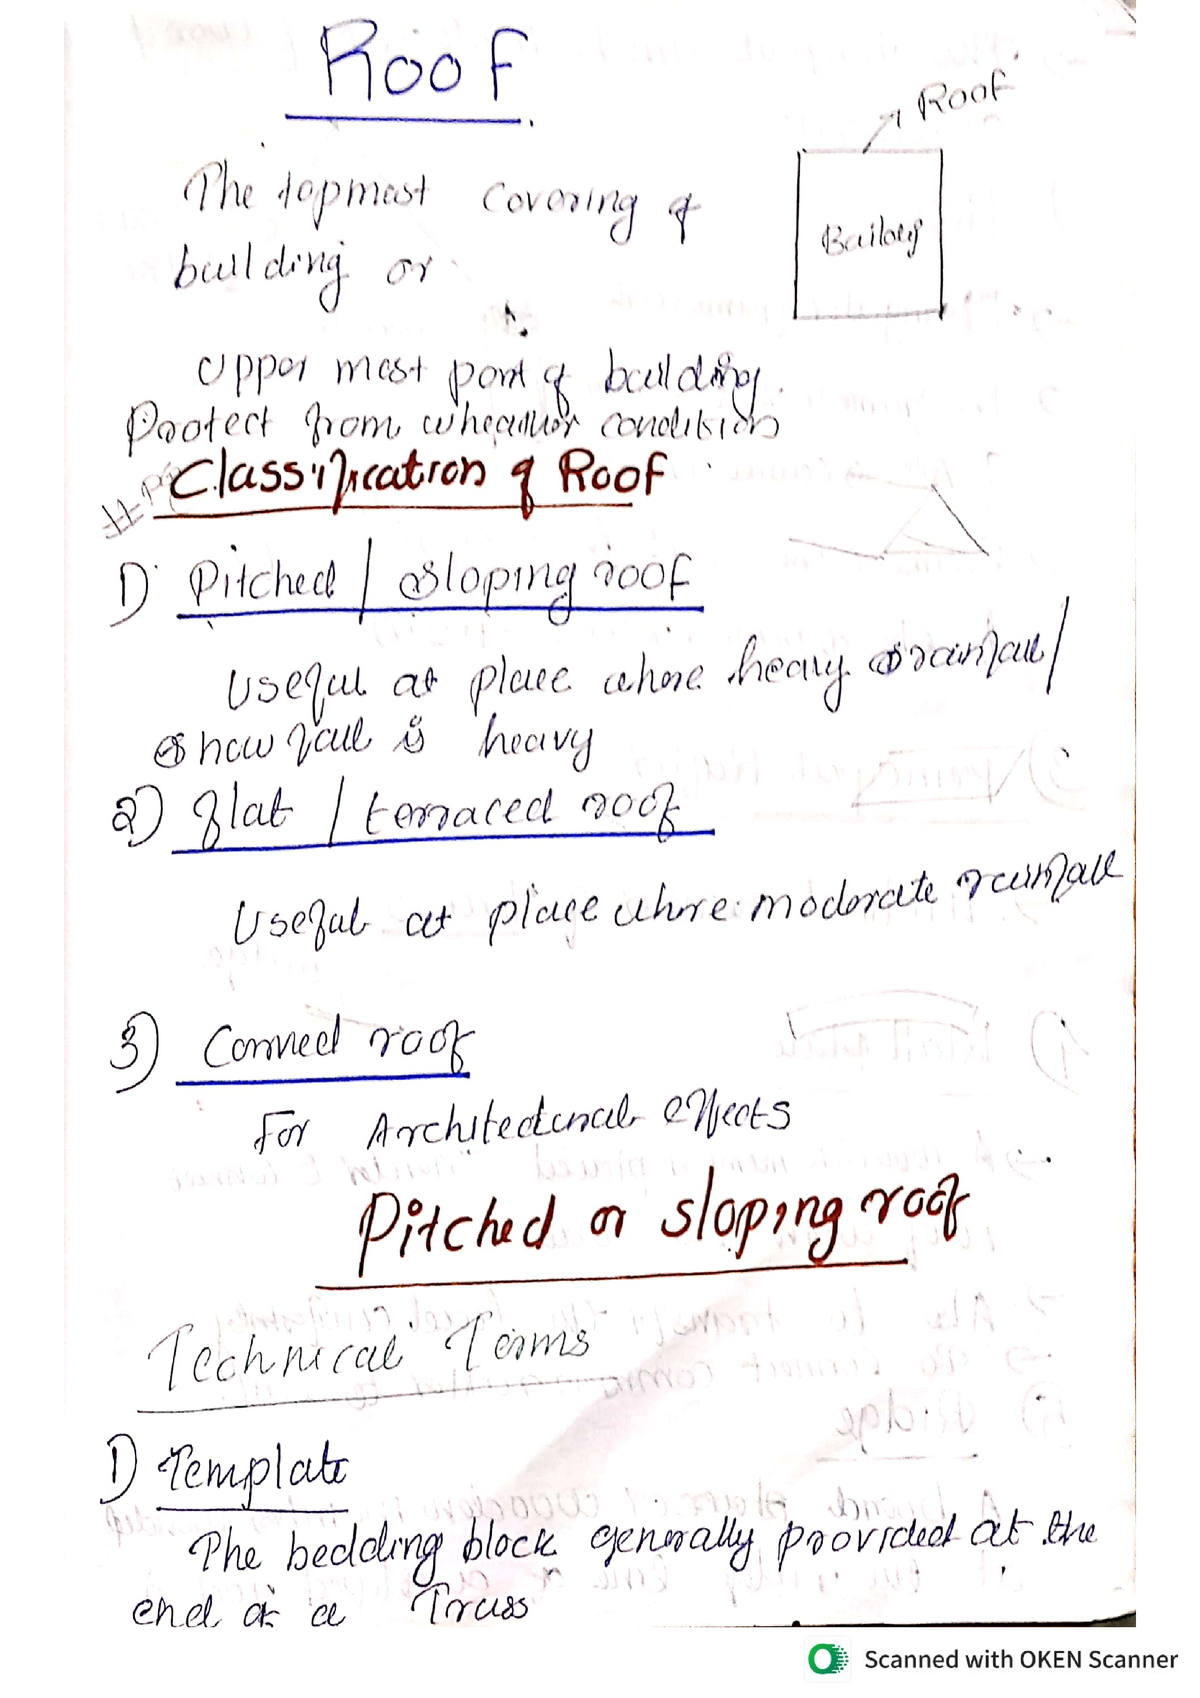 Roof
Roof
The topmost covering of
Building
building or
Upper most part of building.
Protect from wheather condition
Classification of Roof
1) Pitched / sloping roof
Useful at place where heavy rainfall /
snow fall is heavy
2) flat / terraced roof
Useful at place where moderate rainfall
3) Corved roof
For Architectural effects
Pitched or sloping roof
Technical Terms
1) Template
The bedding block generally provided at the
end of a Truss
Scanned with OKEN Scanner